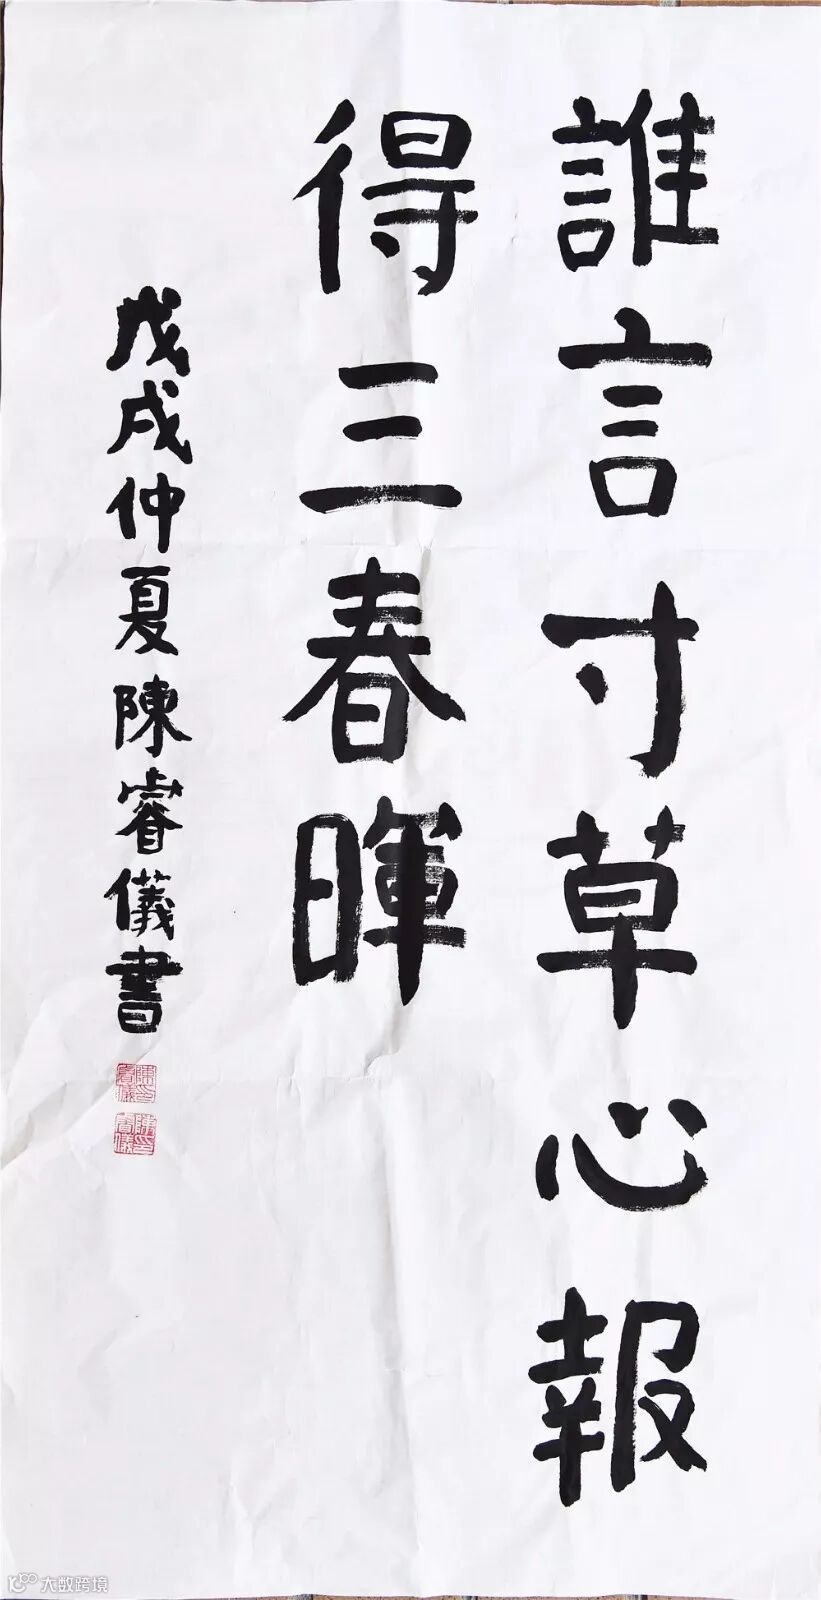 誰言寸草心報
得三春暉
戊戌仲夏陳睿儀書
陳睿儀印
陳睿儀印
大数跨境